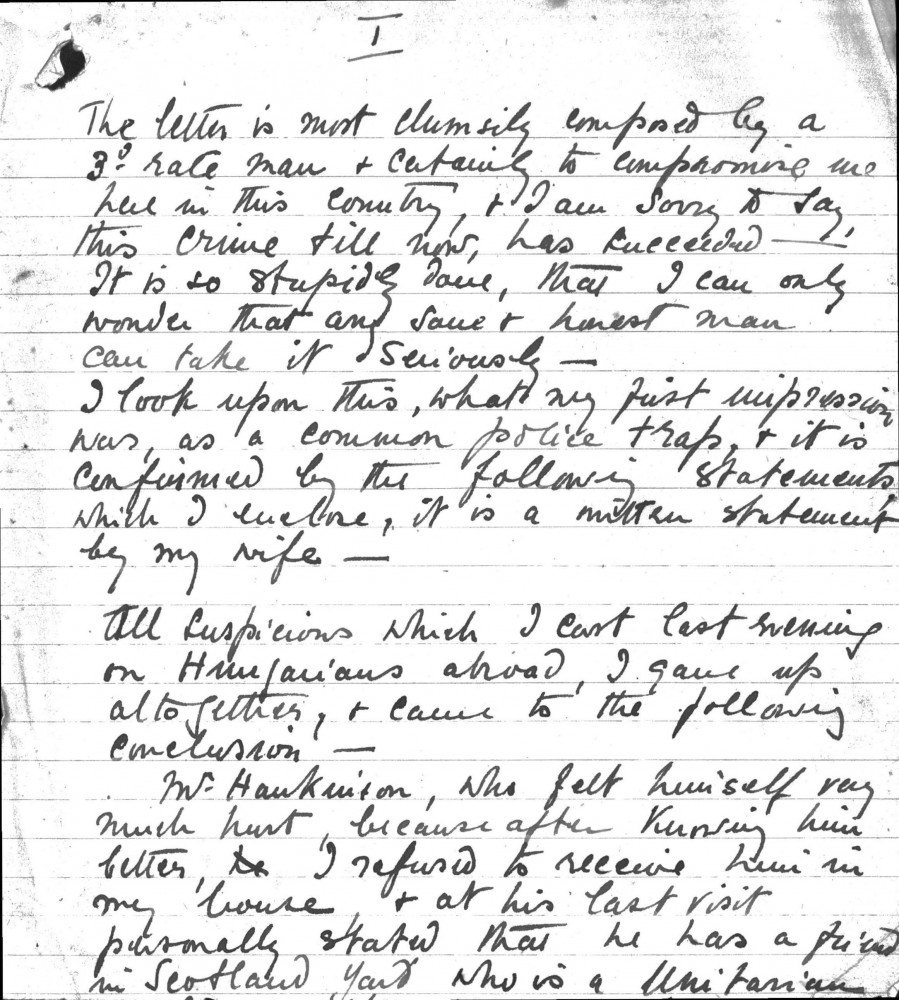 I
The letter is most clumsily composed by a
3d rate man & certainly to compromise me
here in this country, & I am sorry to say,
this crime till now, has succeeded —
It is so stupidly done, that I can only
wonder that any sane & honest man
can take it seriously —
I look upon this, what my first impression
was, as a common police trap, & it is
confirmed by the following statements
which I enclose, it is a written statement
by my wife —
All suspicions which I cast last evening
on Hungarians abroad, I gave up
altogether, & came to the following
conclussion —
Mr. Hankinson, who felt himself very
much hurt, because after knowing him
better, I refused to receive him in
my house, & at his last visit
personally stated that he has a friend
in Scotland Yard who is a Unitarian